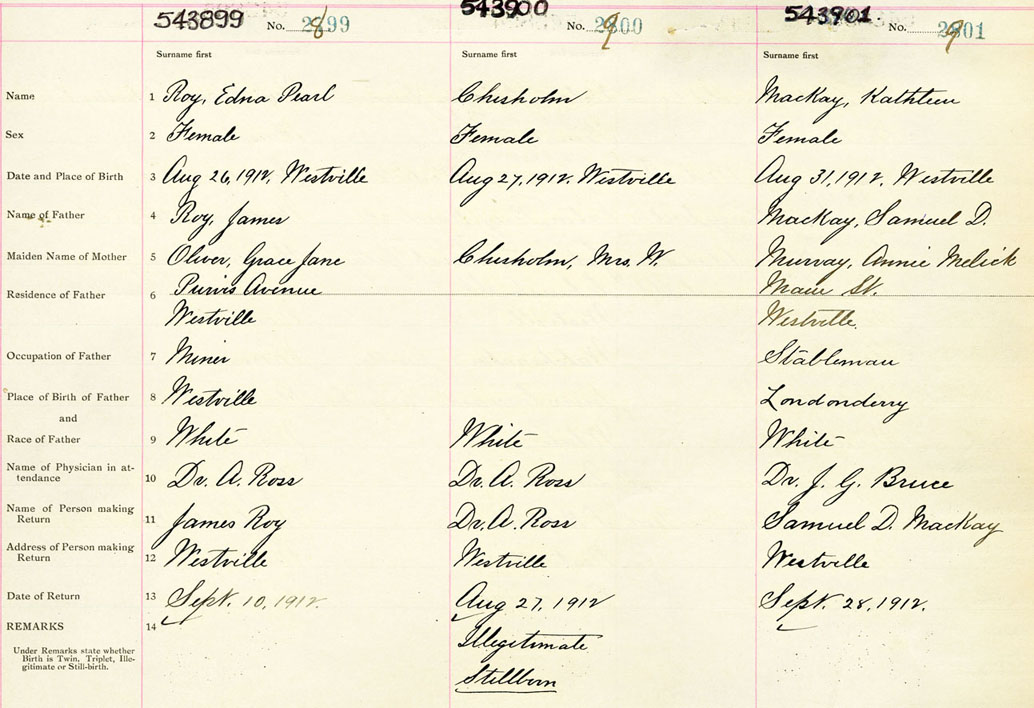 543899 No. 2899 543900 No. 2900 543901. No. 2901
Surname first Surname first Surname first
Name 1 Roy, Edna Pearl Chisholm MacKay, Kathleen
Sex 2 Female Female Female
Date and Place of Birth 3 Aug 26, 1912, Westville Aug 27, 1912. Westville Aug 31, 1912, Westville
Name of Father 4 Roy, James MacKay, Samuel D.
Maiden Name of Mother 5 Oliver, Grace Jane Chisholm, Mrs. W. Murray, Annie Melick
Residence of Father 6 Purvis Avenue Main St.
Westville Westville.
Occupation of Father 7 Miner Stableman
Place of Birth of Father 8 Westville Londonderry
and
Race of Father 9 White White White
Name of Physician in at-
tendance 10 Dr. A. Ross Dr. A. Ross Dr. J. G. Bruce
Name of Person making
Return 11 James Roy Dr. A. Ross Samuel D. MacKay
Address of Person making
Return 12 Westville Westville Westville
Date of Return 13 Sept. 10, 1912. Aug 27, 1912 Sept. 28, 1912.
REMARKS 14
Illegitimate
Under Remarks state whether
Birth is Twin. Triplet, Ille-
gitimate or Still-birth.
Stillborn